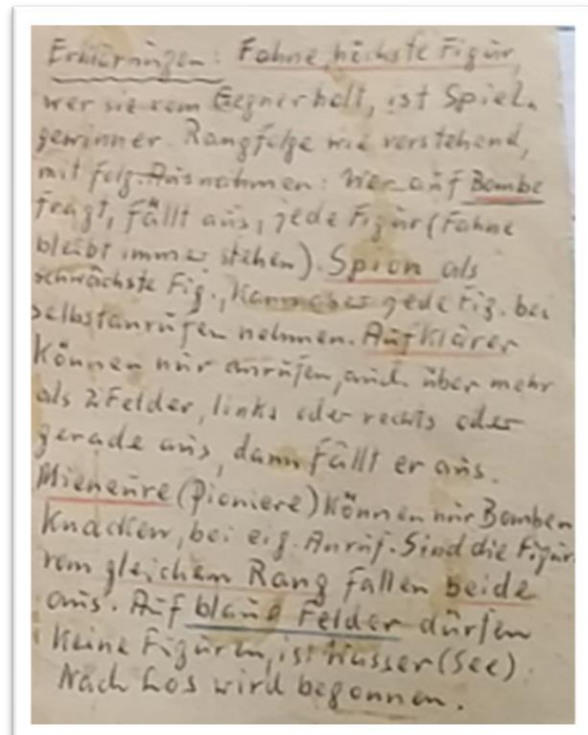 Erklärungen: Fahne, höchste Figur,
wer sie vom Gegner holt, ist Spiel-
gewinner. Rangfolge wie vorstehend,
mit folg. Ausnahmen: Wer auf Bombe
fragt, fällt aus, jede Figur (Fahne
bleibt immer stehen). Spion als
schwächste Fig., kann aber jede Fig. bei
selbstanrufen nehmen. Aufklärer
können nur anrufen, auch über mehr
als 2 Felder, links oder rechts oder
gerade aus, dann fällt er aus.
Mieneure (Pioniere) können nur Bomben
knacken, bei eig. Anruf. Sind die Figur.
vom gleichem Rang fallen beide
aus. Auf blaue Felder dürfen
keine Figuren, ist Wasser (See).
Nach Los wird begonnen.